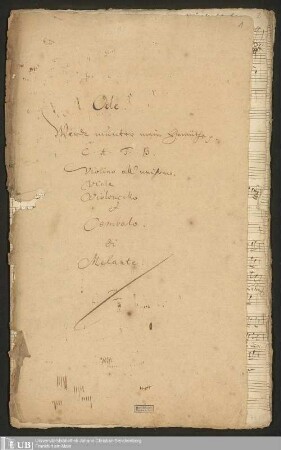 Ode
Werde munter mein Gemüthe
C A T B
Violino all unisono
Viola
Violoncello
e
Cembalo
di
Melante
UB
Universitätsbibliothek Johann Christian Senckenberg
Frankfurt am Main